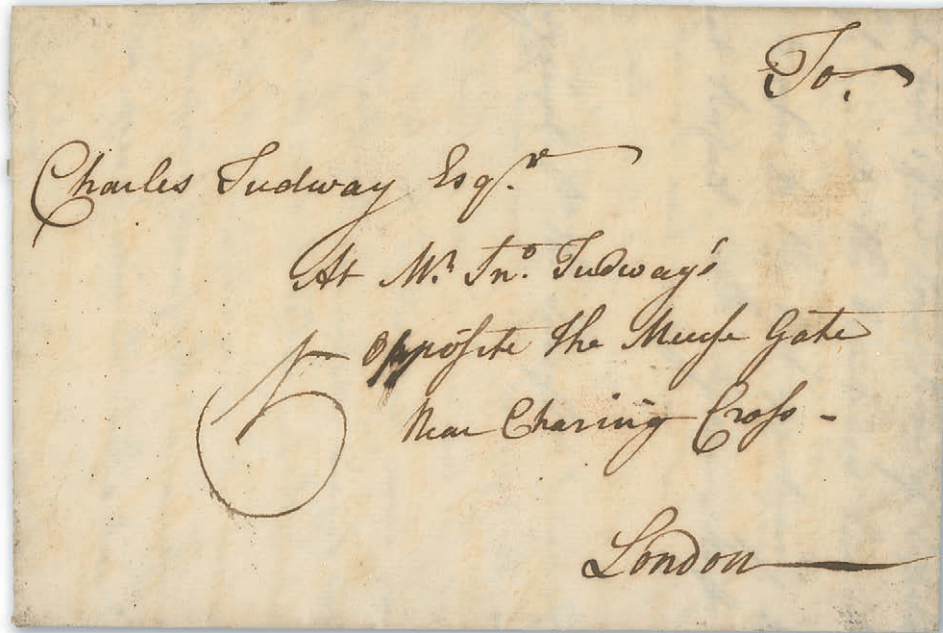 To,
Charles Tudway Esqr.
At Mr. Jno. Tudway's
opposite the Meuse Gate
Near Charing Cross -
London